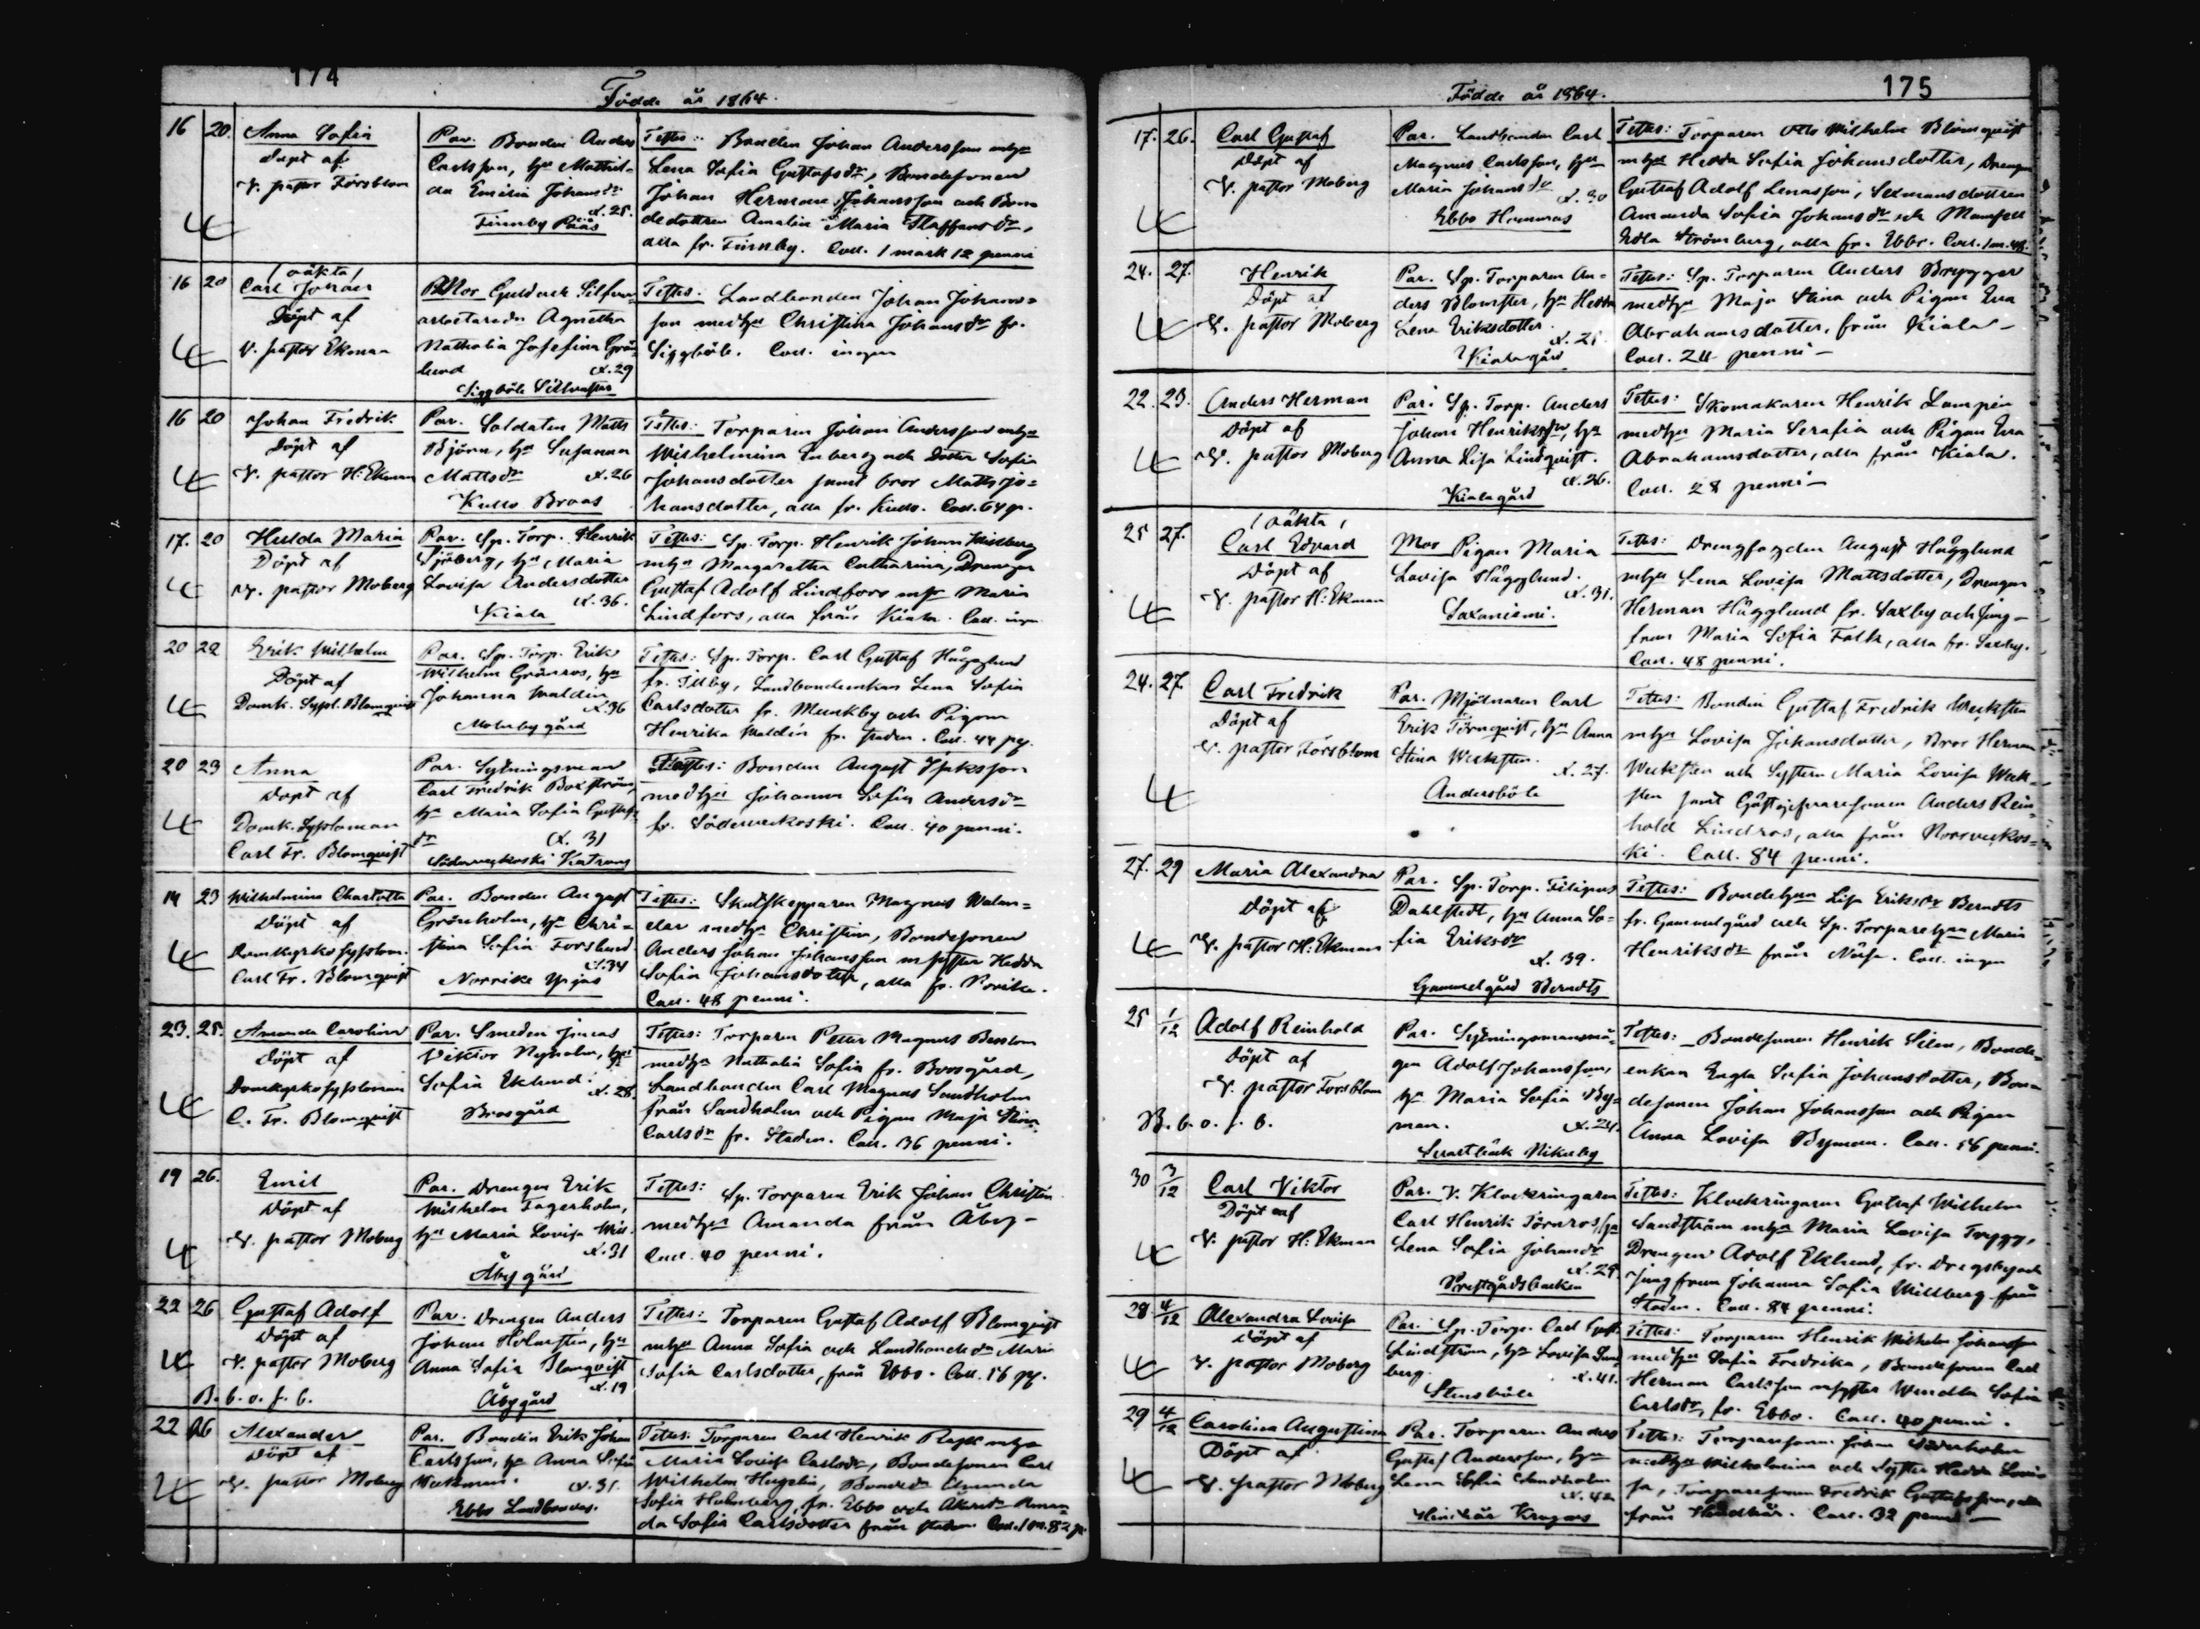 174
Födde år 1864.
16 20. Anna Sofia
Döpt af
V. pastor Forsblom
Par. Bonden Anders
Carlsson, hu Mathil-
da Emilia Johansdr
d. 25.
Finnby Paas
Testes: Bonden Johan Andersson mhu
Lena Sofia Gustafsdr, Bondesonen
Johan Herman Johansson och Bon-
dedottren Amalia Maria Staffansdr,
alla fr. Finnby. Coll. 1 mark 12 penni
16 20 (oäkta)
Carl Johan
Döpt af
V. pastor Ekman
Mor Guld och Silfver-
arbetaredr Agnetha
Nathalia Josefina Grön-
lund d. 29
Siggböle
Testes: Landbonden Johan Johans-
son medhu Christina Johansdr fr.
Siggböle. Coll. ingen
16 20 Johan Fredrik
Döpt af
V. pastor H: Ekman
Par. Soldaten Matts
Björn, hu Susanna
Mattsdr d. 26
Kullo Braas
Testes: Torparen Johan Andersson mhu
Wilhelmina Enberg och Dotter Sofia
Johansdotter samt bror Matts Jo-
hansdotter, alla fr. Kullo. Coll. 64 p.
17. 20 Hulda Maria
Döpt af
V. pastor Moberg
Par. Sp. Torp. Henrik
Sjöberg, hu Maria
Lovisa Andersdotter
d. 36.
Kiala
Testes: Sp. Torp. Henrik Johan
mhu Margaretha Catharina, Drengen
Gustaf Adolf Lindfors m Maria
Lindfors, alla från Kiala. Coll. ingen
20 22 Erik Wilhelm
Döpt af
Domk. Sysl. Blomqvist
Par. Sp. Torp. Erik
Wilhelm Grönros, hu
Johanna Waldin
d. 36
Molnby gård
Testes: Sp. Torp. Carl Gustaf Hägglund
fr. Illby, Landbondeenkan Lena Sofia
Carlsdotter fr. Munkby och Pigan
Henrika Waldin fr. staden. Coll. 44 p.
20 23 Anna
Döpt af
Domk. Sysloman
Carl Fr. Blomqvist
Par. Sytningsman
Carl Fredrik Boxström,
hu Maria Sofia Gustafs
dr d. 31
Söderveckoski
Testes: Bonden August Isaksson
medhu Johanna Sofia Andersdr
fr. Söderveckoski. Coll. 40 penni.
14 23 Wilhelmina Charlotta
Döpt af
Domkyrkosyslom.
Carl Fr. Blomqvist
Par. Bonden August
Grönholm, hu Chri-
stina Sofia Forslund
d. 34
Norrike
Testes: Skutskepparen Magnus Walen-
der medhu Christina, Bondesonen
Anders Johan Johansson m syster Hedda
Sofia Johansdotter, alla fr. Norike.
Coll. 48 penni.
23. 25. Amanda Carolina
Döpt af
Domkyrkosysloman
C. Fr. Blomqvist
Par. Smeden Jonas
Viktor Nyholm, hu
Sofia Eklund.
d. 28.
Brosgård
Testes: Torparen Petter Magnus
medhu Nathalia Sofia fr. Bosgård,
Landbonden Carl Magnus Sandholm
från Sandholm och Pigan Maja Stina
Carlsdr fr. Staden. Coll. 36 penni.
19 26. Emil
Döpt af
V. pastor Moberg
Par. Drengen Erik
Wilhelm Fagerholm,
hu Maria Lovisa
d. 31
Åby gård
Testes: Sp. Torparen Erik Johan Christin
medhu Amanda från Åby-
Coll. 40 penni.
22 26 Gustaf Adolf
Döpt af
V. pastor Moberg
B. b. o. f. b.
Par. Drengen Anders
Johan Holmsten, hu
Anna Sofia Blomqvist
d. 19
Åbygård
Testes: Torparen Gustaf Adolf Blomqvist
mhu Anna Sofia och Landbondedr Maria
Sofia Carlsdotter, från Ebbo. Coll. 56 p.
22 26 Alexander
Döpt af
V. pastor Moberg
Par. Bonden Erik Johan
Carlsson, hu Anna Sofia
d. 31.
Ebbo
Testes: Torparen Carl Henrik mhu
Maria Lovisa Carlsdr, Bondesonen Carl
Wilhelm, Bondedr Amanda
Sofia Holmberg, fr. Ebbo och Aman-
da Sofia Carlsdotter från staden. Coll. 1 m. 82 p.
175
Födde år 1864.
17. 26. Carl Gustaf
Döpt af
V. pastor Moberg
Par. Landbonden Carl
Magnus Carlsson, hu
Maria Johansdr
d. 30
Ebbo Hannas
Testes: Torparen Otto Wilhelm Blomqvist
mhu Hedda Sofia Johansdotter, Drengen
Gustaf Adolf Lenasson, Sexmansdottren
Amanda Sofia Johansdr och Mamsell
Edla Strömberg, alla fr. Ebbo. Coll. 1 m. 48.
24. 27. Henrik
Döpt af
V. pastor Moberg
Par. Sp. Torparen An-
ders Blomster, hu Hedda
Lena Eriksdotter.
d. 25.
Kialagård
Testes: Sp. Torparen Anders Brygger
medhu Maja Stina och Pigan Eva
Abrahamsdotter, från Kiala-
Coll. 24 penni-
22. 23. Anders Herman
Döpt af
V. pastor Moberg
Par. Sp. Torp. Anders
Johan Henriksson, hu
Anna Lisa Lindqvist.
d. 26.
Kialagård
Testes: Skomakaren Henrik Lampén
medhu Maria Serafia och Pigan Eva
Abrahamsdotter, alla från Kiala.
Coll. 28 penni-
25 27. (oäkta)
Carl Edvard
Döpt af
V. pastor H: Ekman
Mor Pigan Maria
Lovisa Hägglund.
d. 31.
Saxaniemi.
Testes: Drengfogden August Hägglund
mhu Lena Lovisa Mattsdotter, Drengen
Herman Hägglund fr. Saxby och Jung-
frun Maria Sofia Falk, alla fr. Saxby.
Coll. 48 penni.
24. 27. Carl Fredrik
Döpt af
V. pastor Forsblom
Par. Mjölnaren Carl
Erik Törnqvist, hu Anna
Stina Wecksten.
d. 27.
Andersböle
Testes: Bonden Gustaf Fredrik Wecksten
mhu Lovisa Johansdotter, Bror Herman
Wecksten och Systern Maria Lovisa Weck-
sten samt Gästgifvaresonen Anders Rein-
hold Lindros, alla från Norrveckos-
ki. Coll. 84 penni.
27. 29 Maria Alexandra
Döpt af
V. pastor H: Ekman
Par. Sp. Torp. Filipus
Dahlstedt, hu Anna So-
fia Eriksdr
d. 39.
Gammelgård Berndts
Testes: Bondehun Lisa Eriksdr Berndts
fr. Gammelgård och Sp. Torparehun Maria
Henriksdr från Näse. Coll. ingen
25 1/12 Adolf Reinhold
Döpt af
V. pastor Forsblom
B. b. o. f. b.
Par. Sytningsmansmå-
gen Adolf Johansson,
hu Maria Sofia By-
man. d. 24.
Svartbäck Nikuby
Testes: Bondesonen Henrik Silen, Bonde-
enkan Engla Sofia Johansdotter, Bon-
desonen Johan Johansson och Pigan
Anna Lovisa Byman. Coll. 56 penni.
30 3/12 Carl Viktor
Döpt af
V. pastor H: Ekman
Par. V. Klockringaren
Carl Henrik Törnros, hu
Lena Sofia Johansdr
d. 29.
Prestgårdsbacken
Testes: Klockringaren Gustaf Wilhelm
Sandström mhu Maria Lovisa Trygg,
Drengen Adolf Eklund, fr. Dregsby och
Jungfrun Johanna Sofia Willberg från
Staden. Coll. 84 penni.
28 4/12 Alexandra Lovisa
Döpt af
V. pastor Moberg
Par. Sp. Torp. Carl Gust.
Lindström, hu Lovisa Lind
berg. d. 41.
Stensböle
Testes: Torparen Henrik Wilhelm Johansson
medhu Sofia Fredrika, Bondesonen Carl
Herman Carlsson m syster Wendla Sofia
Carlsdr, fr. Ebbo. Coll. 40 penni.
29 4/12 Carolina Augustina
Döpt af
V. pastor Moberg
Par. Torparen Anders
Gustaf Andersson, hu
Lena Sofia Sandholm
d. 42
Hindhår Krogars
Testes: Torparesonen Johan Söderholm
medhu Wilhelmina och Syster Hedda Lovi-
sa, Torparesonen Fredrik Gustafsson, alla
från Hindhår. Coll. 32 penni-